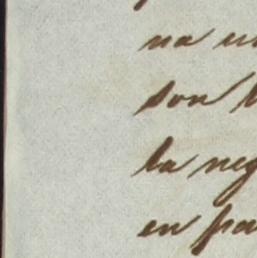 na un
son l
la neg
en pa